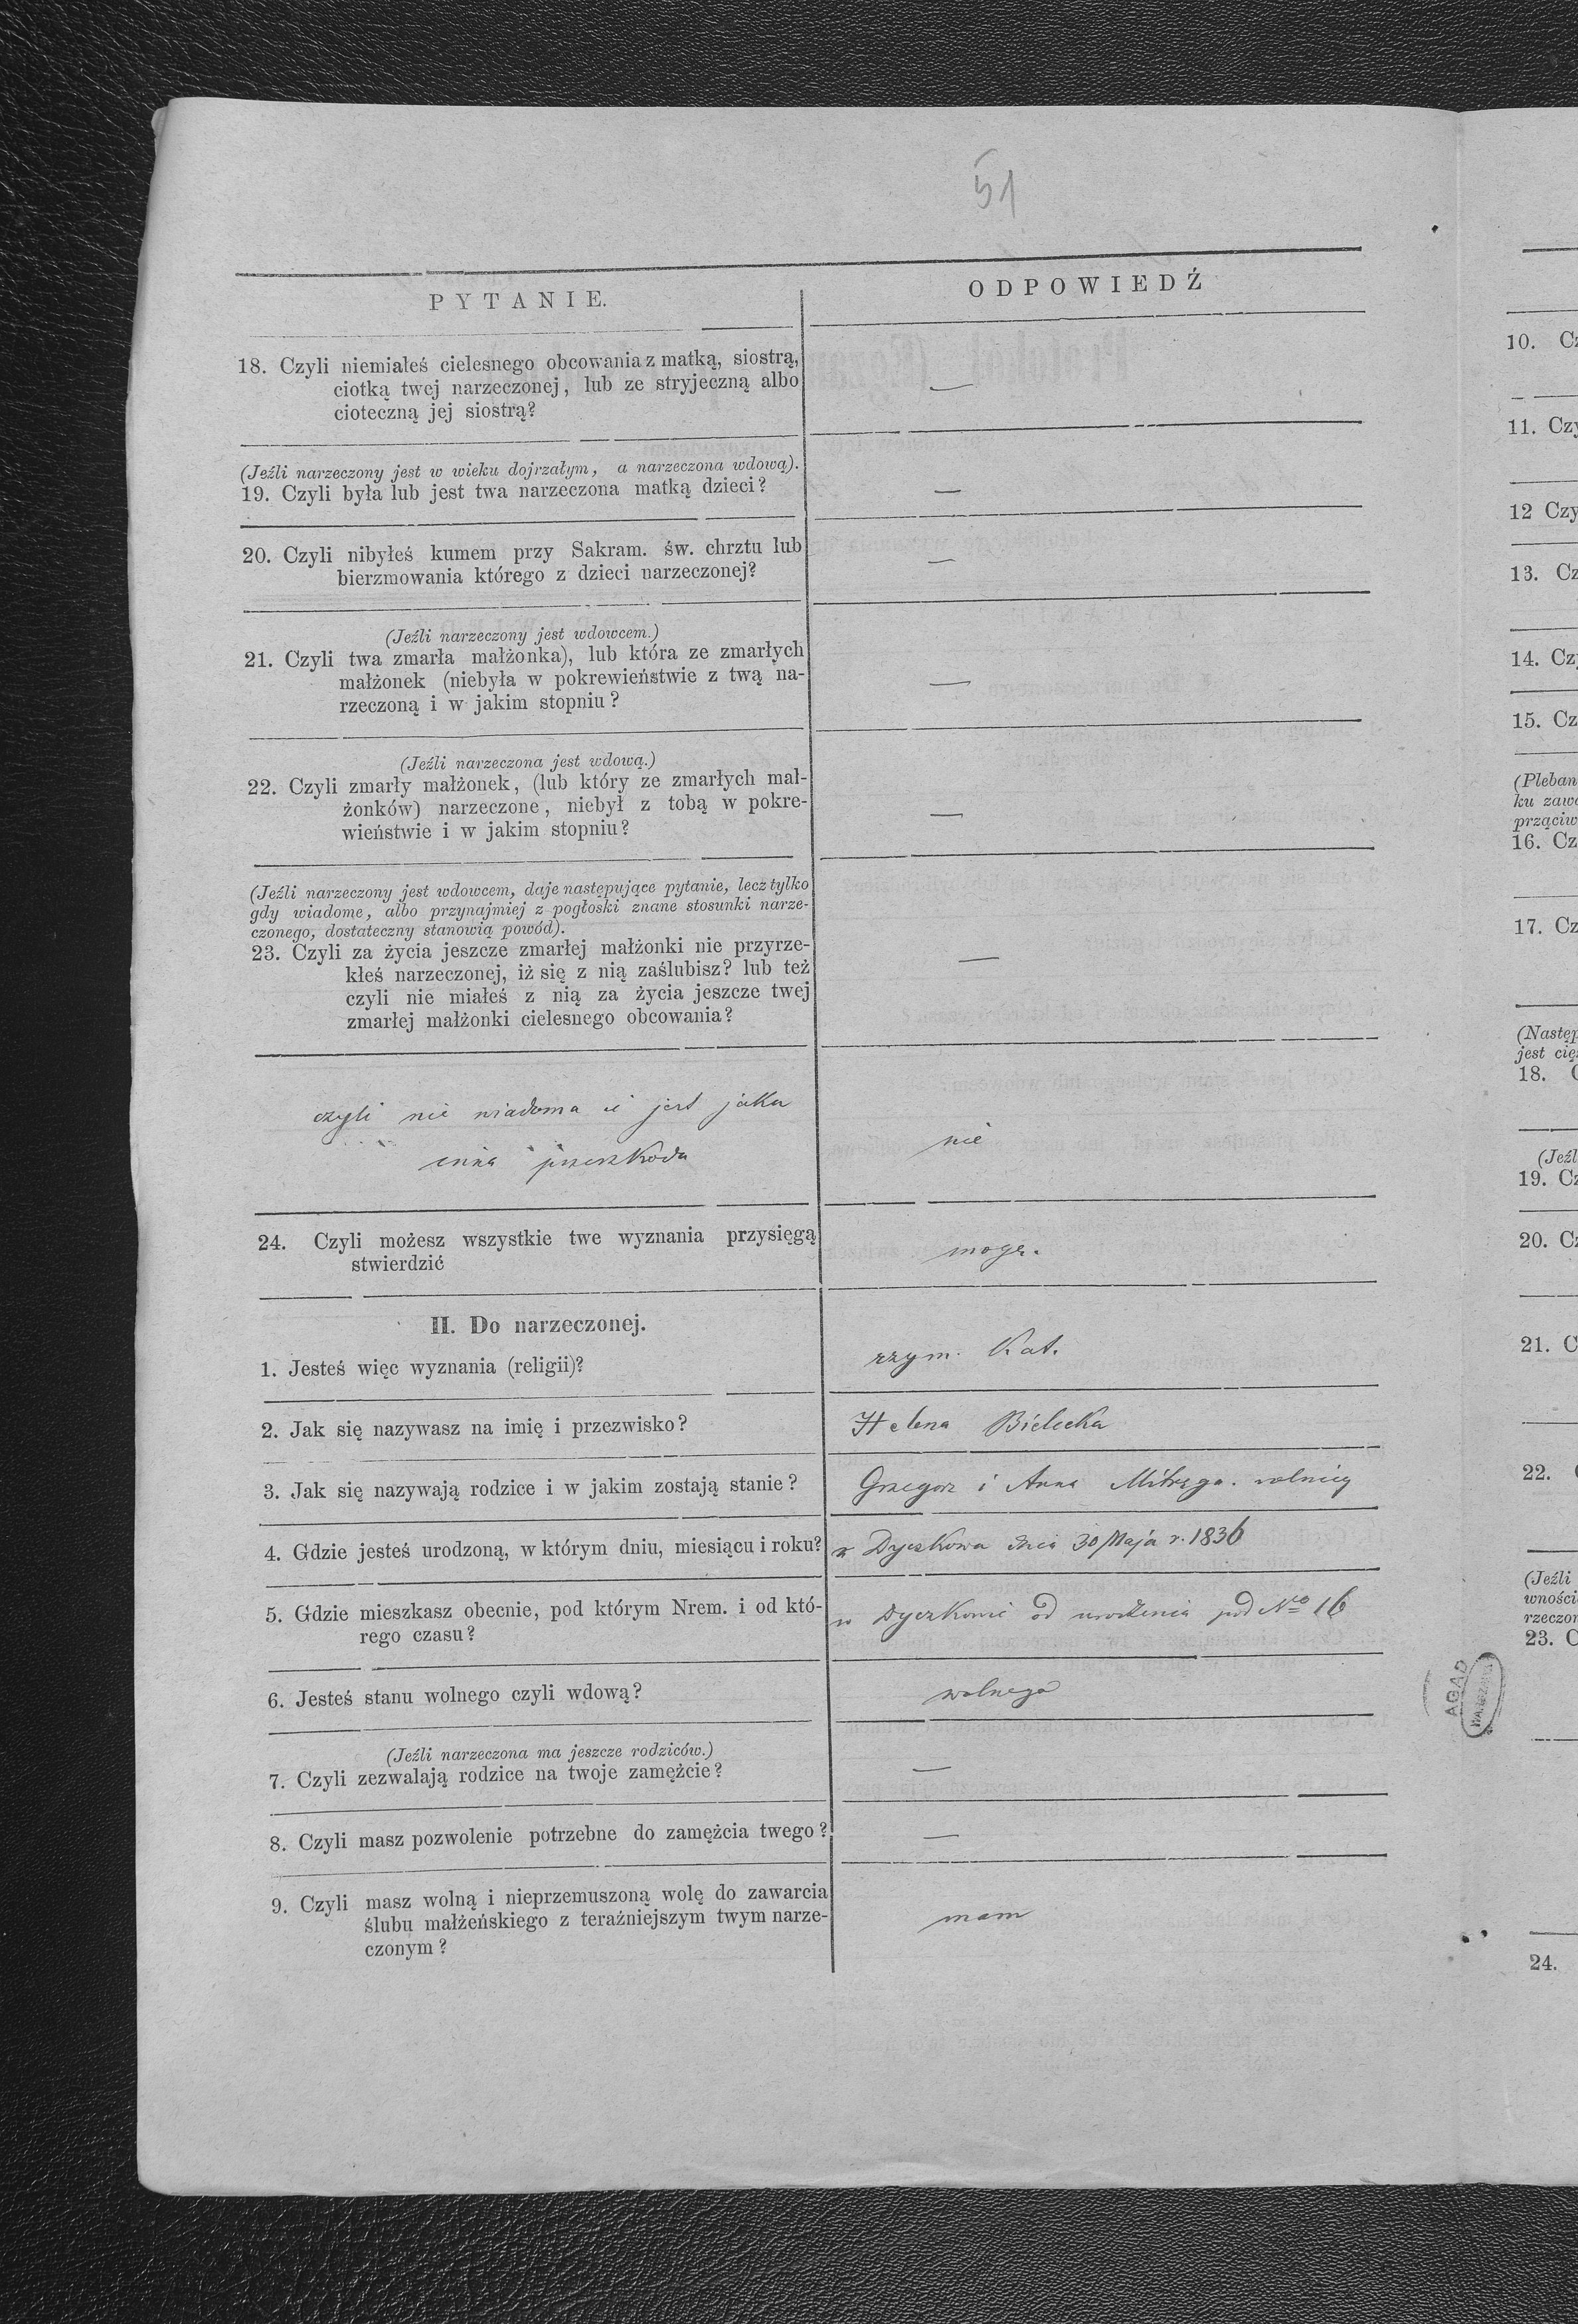 51
PYTANIE.
ODPOWIEDŹ
18. Czyli niemiałeś cielesnego obcowania z matką, siostrą,
ciotką twej narzeczonej, lub ze stryjeczną albo
cioteczną jej siostrą?
—
(Jeźli narzeczony jest w wieku dojrzałym, a narzeczona wdową).
19. Czyli była lub jest twa narzeczona matką dzieci?
—
20. Czyli nibyłeś kumem przy Sakram. św. chrztu lub
bierzmowania którego z dzieci narzeczonej?
—
(Jeźli narzeczony jest wdowcem.)
21. Czyli twa zmarła małżonka), lub która ze zmarłych
małżonek (niebyła w pokrewieństwie z twą na-
rzeczoną i w jakim stopniu?
—
(Jeźli narzeczona jest wdową.)
22. Czyli zmarły małżonek, (lub który ze zmarłych mał-
żonków) narzeczone, niebył z tobą w pokre-
wieństwie i w jakim stopniu?
—
(Jeźli narzeczony jest wdowcem, daje następujące pytanie, lecz tylko
gdy wiadome, albo przynajmiej z pogłoski znane stosunki narze-
czonego, dostateczny stanowią powód).
23. Czyli za życia jeszcze zmarłej małżonki nie przyrze-
kłeś narzeczonej, iż się z nią zaślubisz? lub też
czyli nie miałeś z nią za życia jeszcze twej
zmarłej małżonki cielesnego obcowania?
—
czyli nie wiadoma ci jest jaka
inna przeszkoda
nie
24. Czyli możesz wszystkie twe wyznania przysięgą
stwierdzić
mogę.
II. Do narzeczonej.
1. Jesteś więc wyznania (religii)?
rzym. Kat.
2. Jak się nazywasz na imię i przezwisko?
Helena Bielecka
3. Jak się nazywają rodzice i w jakim zostają stanie?
Grzegorz i Anna Mitręga. rolnicy
4. Gdzie jesteś urodzoną, w którym dniu, miesiącu i roku?
z Dyczkowa dnia 30 Maja r. 1836
5. Gdzie mieszkasz obecnie, pod którym Nrem. i od któ-
rego czasu?
w Dyczkowie od urodzenia pod No 16
6. Jesteś stanu wolnego czyli wdową?
wolnego
(Jeźli narzeczona ma jeszcze rodziców.)
7. Czyli zezwalają rodzice na twoje zamężcie?
—
8. Czyli masz pozwolenie potrzebne do zamężcia twego?
—
9. Czyli masz wolną i nieprzemuszoną wolę do zawarcia
ślubu małżeńskiego z teraźniejszym twym narze-
czonym?
mam
10. Cz
11. Czy
12 Czy
13. Cz
14. Czy
15. Cz
(Pleban
ku zawa
prząciw
16. Cz
17. Cz
(Następ
jest cię
18.
(Jeźl
19. Cz
20. Cz
21. C
22.
(Jeźli
wności
rzeczon
23. C
AGAD
24.